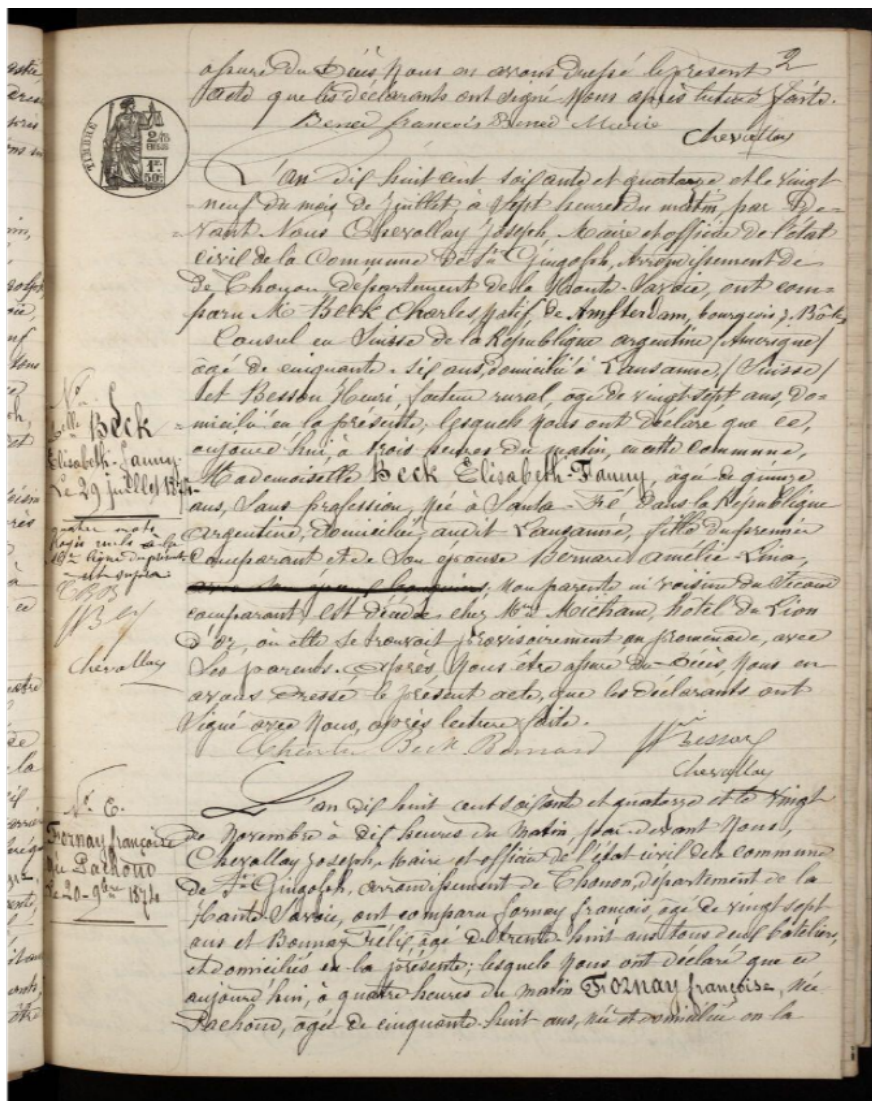 2
assuré du Décès, Nous en avons dressé le présent
acte que les déclarants ont signé Nous après lecture faite.
Bened françois Bened Marie
Chevallay
TIMBRE
L'an dix huit cent soixante et quatorze et le vingt
neuf du mois de Juillet à sept heures du matin, par de-
vant Nous Chevallay Joseph, Maire et officier de l'état
civil de la Commune de St Gingolph, Arrondissement de
de Thonon département de la Haute-Savoie, ont com-
paru Mr Beck Charles, natif de Amsterdam, bourgeois
Consul en Suisse de la République argentine /Amérique/
âgé de cinquante-six ans, domicilié à Lausanne /Suisse/
et Besson Henri, facteur rural, âgé de vingt-sept ans, do-
micilié en la présente; lesquels Nous ont déclaré que ce,
aujourd'hui, à trois heures du matin, en cette commune,
Mademoiselle Beck Elisabeth-Fanny, âgée de quinze
ans, Sans profession, née à Santa-Fé, dans la République
Argentine, domiciliée audit Lausanne, fille du premier
Comparant et de Son epouse Bernard amélie-Lina,
non parente ni voisine du Second
comparant, est décédée chez Mme Michaud, hôtel du Lion
d'or, où elle se trouvait provisoirement en promenade, avec
Ses parents. Après, Nous être assuré du Décès, Nous en
avons Dressé le présent acte, que les déclarants ont
Signé avec Nous, après lecture faite.
Charles Beck Bernard
Besson
Chevallay
Beck
Elisabeth-Fanny.
Le 29 juillet 1874
quatre mots
rayés
Chevallay
L'an dix huit cent soixante et quatorze et le vingt
de Novembre à dix heures du Matin, par-devant Nous,
Chevallay Joseph, Maire et officier de l'état civil de la commune
de St Gingolph, arrondissement de Thonon, département de la
Haute Savoie, ont comparu fornay françois, âgé de vingt sept
ans et Bonnaz Félix, âgé de trente-huit ans tous deux bateliers,
et domiciliés en la présente; lesquels Nous ont déclaré que ce
aujourd'hui, à quatre heures du matin Fornay françoise, née
Pachoud, âgée de cinquante-huit ans, née et domiciliée en la
No 6.
Fornay françoise
née Pachoud
Le 20-9bre 1874